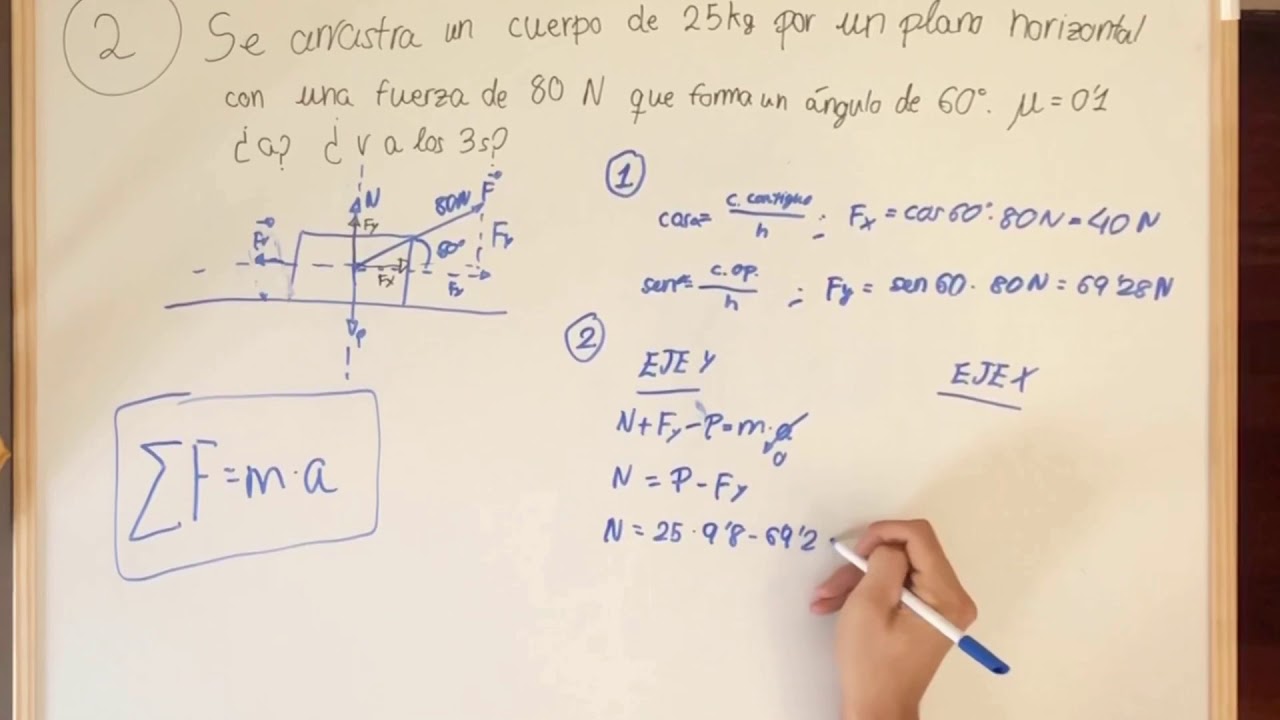 2 Se arrastra un cuerpo de 25kg por un plano horizontal
con una fuerza de 80 N que forma un ángulo de 60°. μ = 0'1
¿a? ¿v a los 3s?
N
Fy
80N
F
60°
Fy
Fr
Fx
Fx
P
ΣF = m·a
1
cosα = c. contiguo / h ; Fx = cos 60° · 80N = 40 N
senα = c. op. / h ; Fy = sen 60 · 80N = 69'28 N
2
EJE Y
N + Fy - P = m · a
0
N = P - Fy
N = 25 · 9'8 - 69'2
EJE X